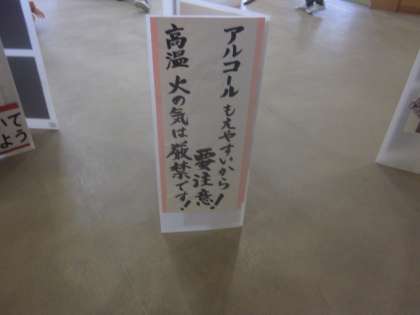 アルコール もえやすいから
要注意!
高温 火の気は厳禁です!
いて
よう